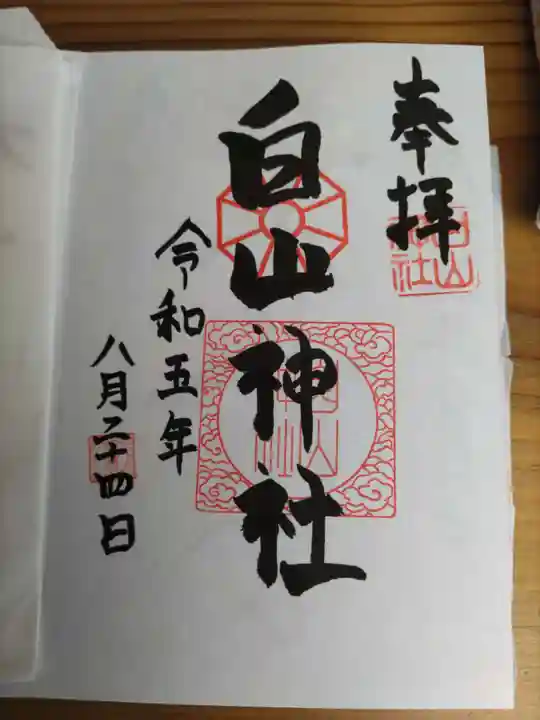 奉拝
白山神社
令和五年
八月二十四日
白山
神社
白山
神社